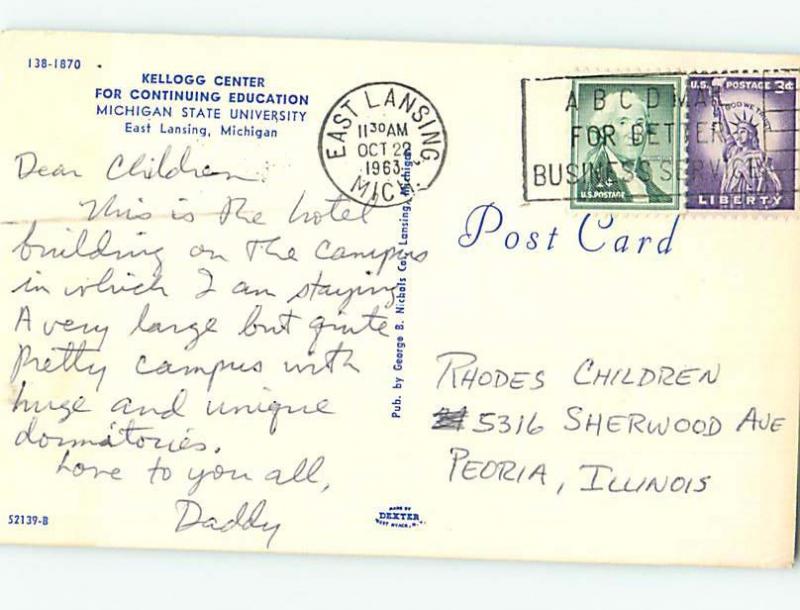 138-1870
KELLOGG CENTER
FOR CONTINUING EDUCATION
MICHIGAN STATE UNIVERSITY
East Lansing, Michigan
EAST LANSING,
11 30 AM
OCT 22
1963
MICH.
A B C D MAIL
FOR BETTER
BUSINESS SERVICE
1¢
U.S. POSTAGE
U.S. POSTAGE 3¢
IN GOD WE TRUST
LIBERTY
Dear Children
This is the hotel
building on the campus
in which I am staying.
A very large but quite
pretty campus with
huge and unique
dormitories.
Love to you all,
Daddy
Pub. by George B. Nichols Co., Lansing, Michigan
Post Card
RHODES CHILDREN
5316 SHERWOOD AVE
PEORIA, ILLINOIS
52139-B
MADE BY
DEXTER
WEST NYACK, N.Y.